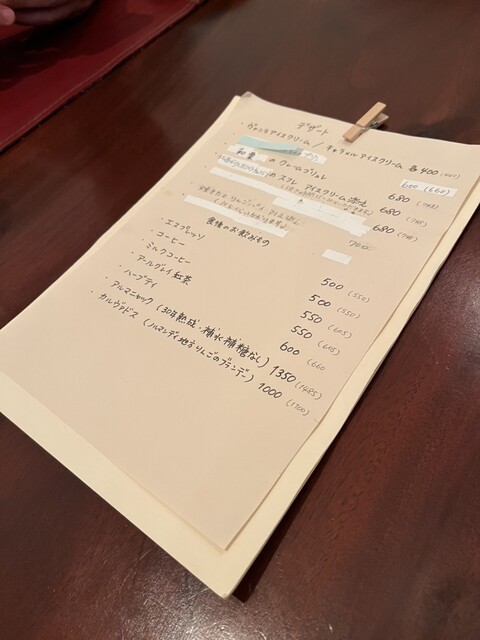 デザート
・ヴァニラアイスクリーム / キャラメルアイスクリーム 各400
600 (660)
・和栗のクレームブリュレ 680 (748)
のスフレ アイスクリーム添え 680 (748)
680 (748)
700
食後のお飲みもの
・エスプレッソ 500 (550)
・コーヒー 500 (550)
・ミルクコーヒー 550 (605)
・アールグレイ紅茶 550 (605)
・ハーブティ 600 (660
・アルマニャック (30年熟成・補水補糖なし) 1350 (1485)
・カルヴァドス (ノルマンディ地方りんごのブランデー) 1000 (1100)